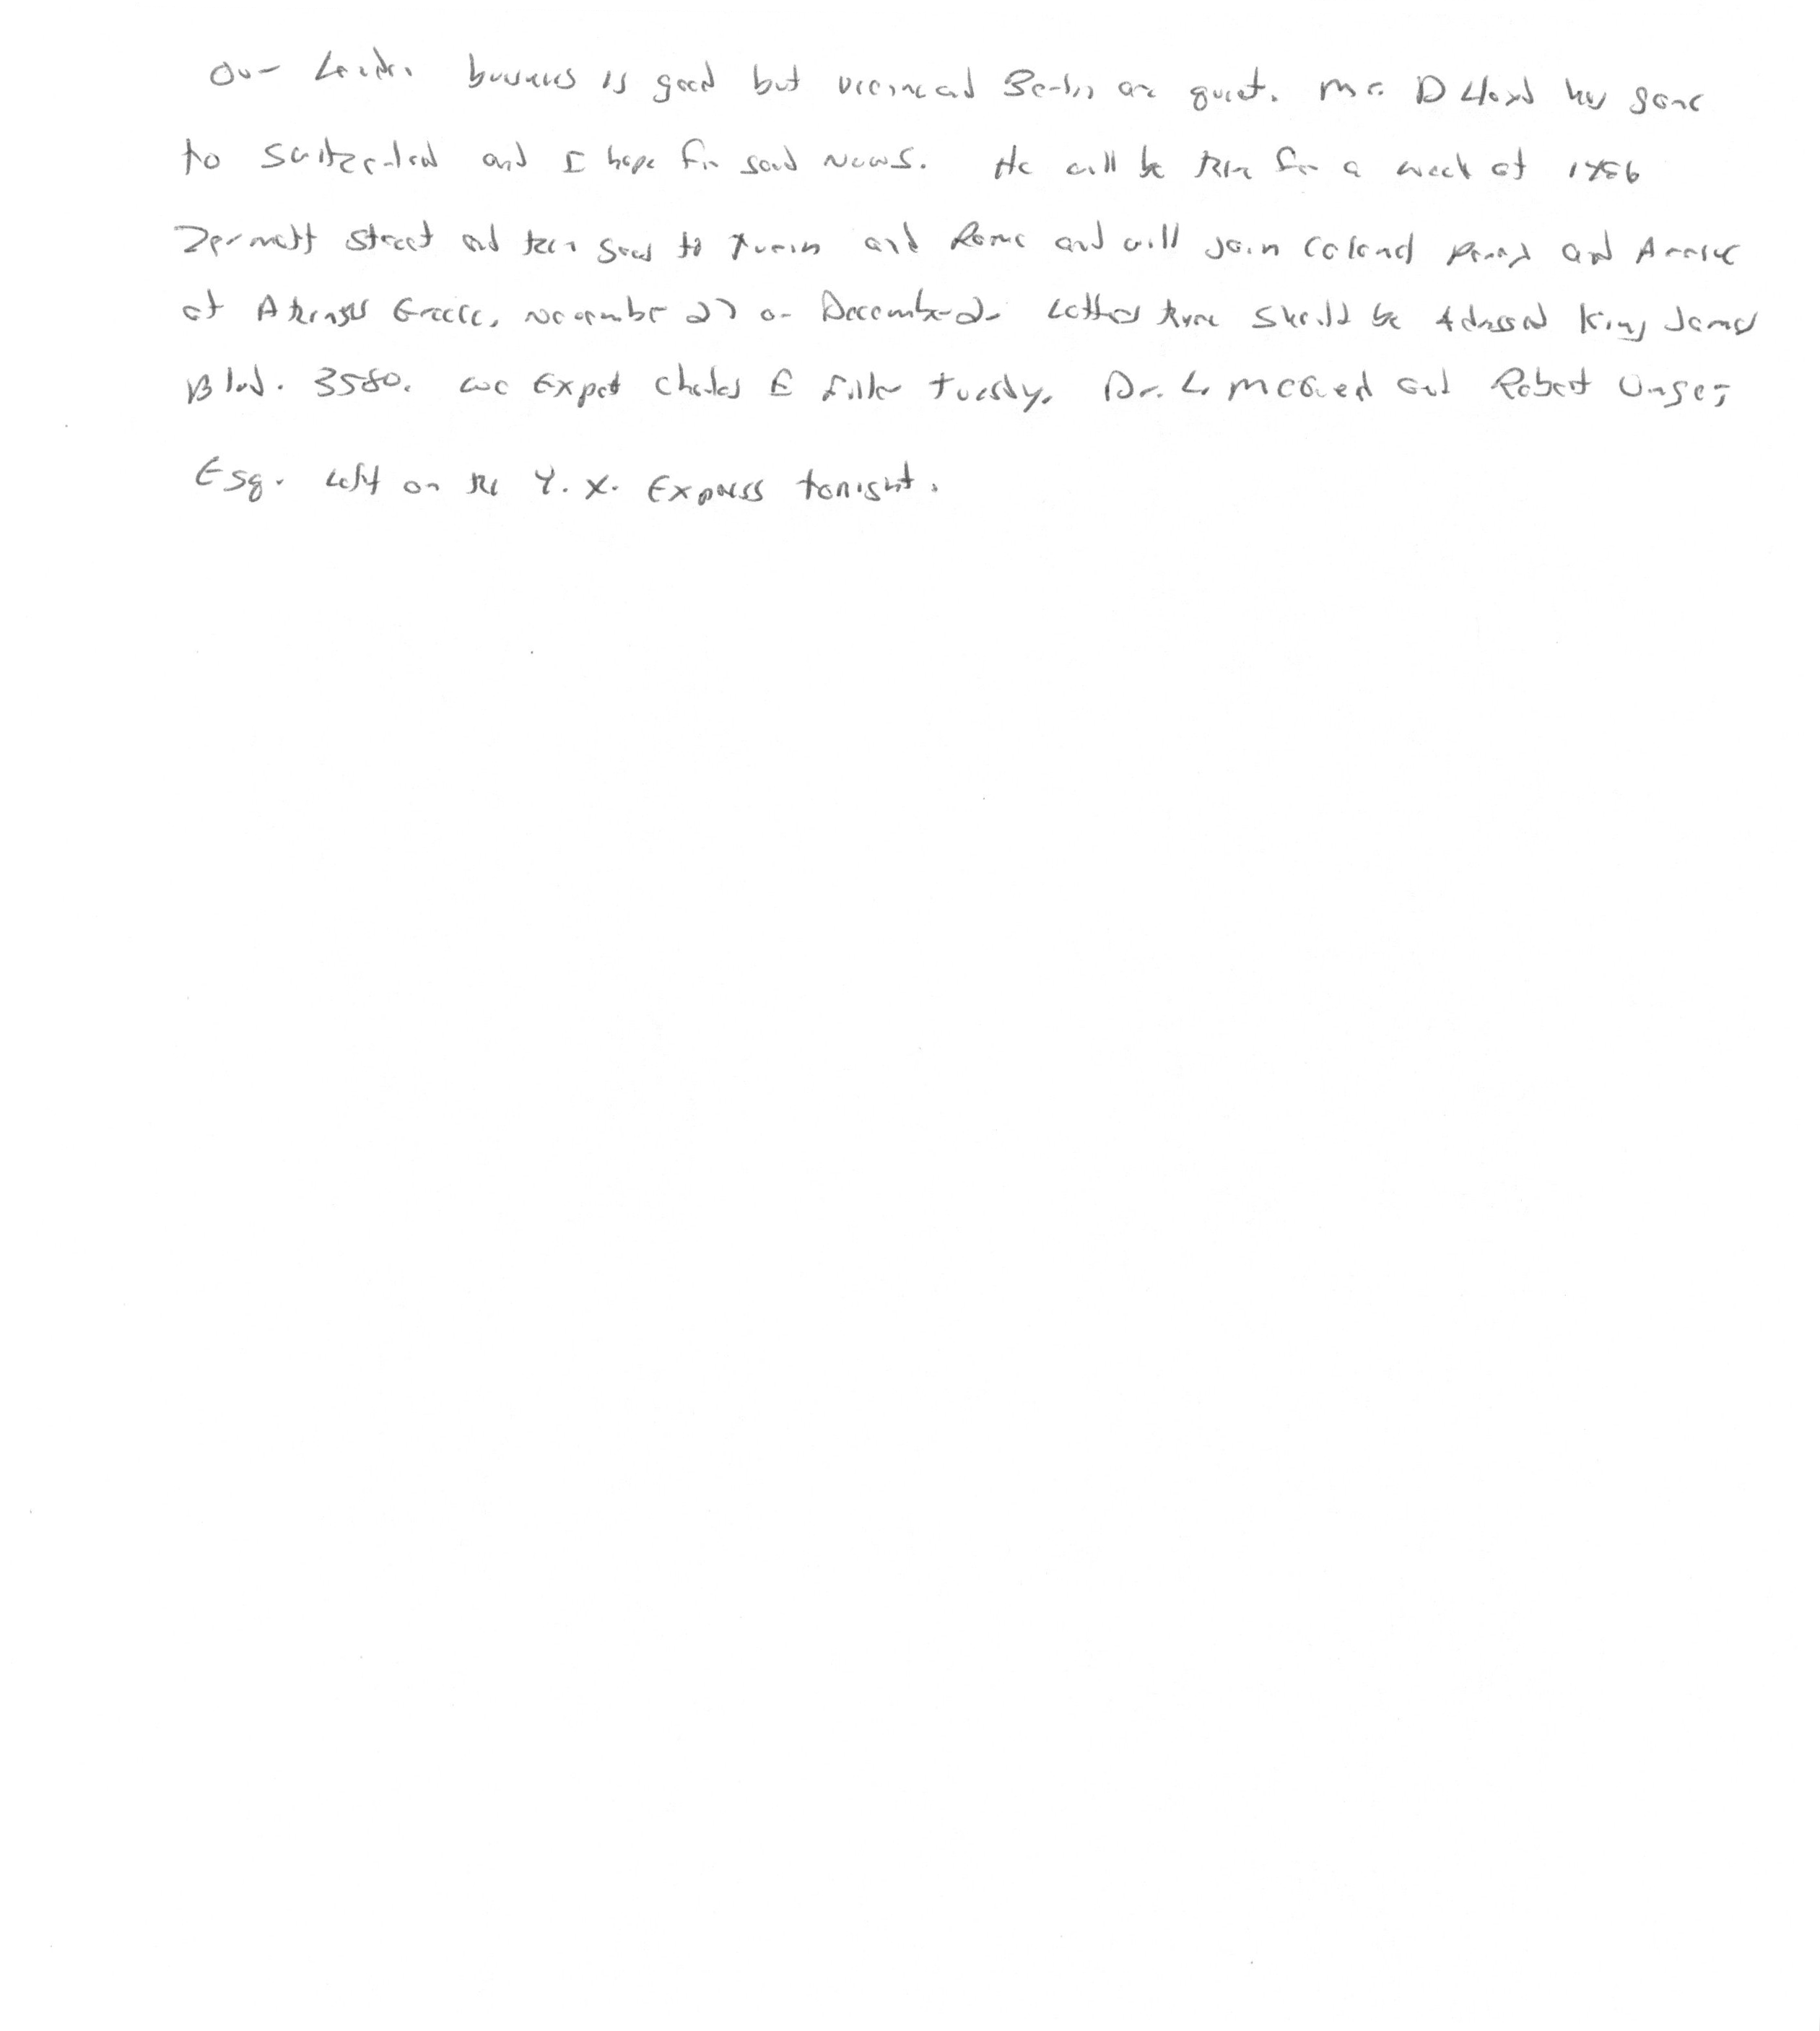 Our London business is good but Vienna and Berlin are quiet. Mr. D Lloyd has gone
to Switzerland and I hope for good news. He will be there for a week at 1456
Zermatt Street and then goes to Turin and Rome and will join Colonel Parry and
at Athens Greece, November 27 or December 2. Letters there should be Adressed King James
Blvd. 3580. we Expect Charles E Fuller Tuesday. Dr. L McQuaid and Robert Unger,
Esq. Left on the Y. X. Express tonight.